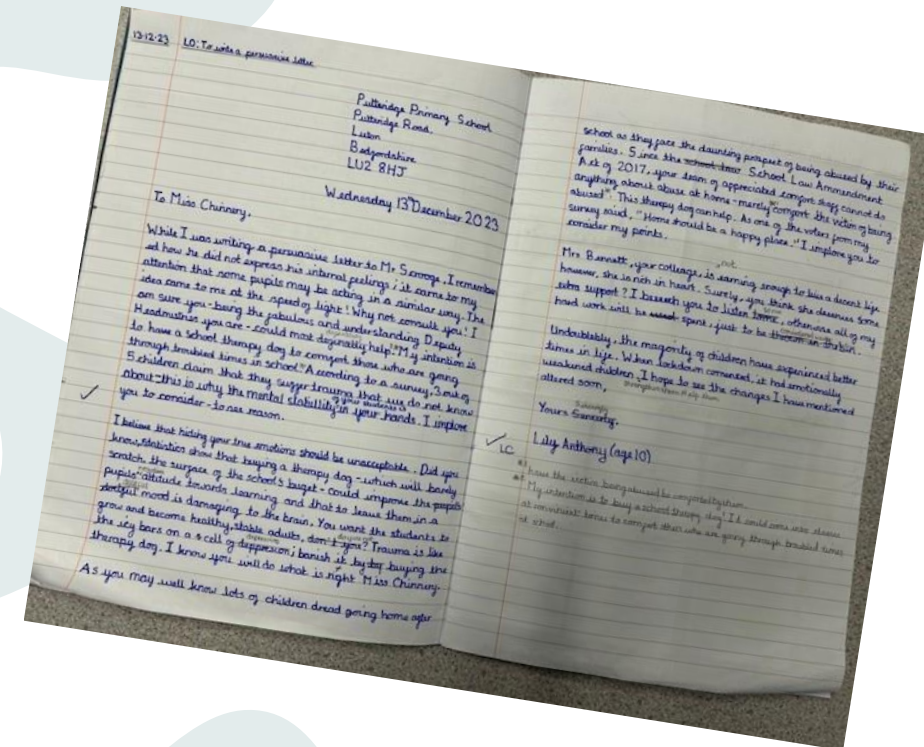 13-12-23 LO: To write a persuasive letter
Putteridge Primary School
Putteridge Road
Luton
Bedfordshire
LU2 8HJ
Wednesday 13th December 2023
To Miss Chinnery,
While I was writing a persuasive letter to Mr Scrooge, I remember
ed how he did not express his internal feelings; it came to my
attention that some pupils may be acting in a similar way. The
idea came to me at the speed of light! Why not consult you! I
am sure you - being the fabulous and understanding Deputy
Headmistress you are - could most help! My intention is
to have a school therapy dog to comfort those who are going
through troubled times in school. According to a survey, 3 out of
5 children claim that they suffer trauma that we do not know
about - this is why the mental stability of your students is in your hands. I implore
you to consider - to see reason.
I believe that hiding your true emotions should be unacceptable. Did you
know, statistics show that buying a therapy dog - which will barely
scratch the surface of the school's buget - could improve the pupils
pupils' attitude towards learning and that to leave them in a
mood is damaging to the brain. You want the students to
grow and become healthy, stable adults, don't you? Trauma is like
the icy bars on a cell of depression; banish it by buying the
therapy dog. I know you will do what is right Miss Chinnery.
As you may well know lots of children dread going home after
school as they face the daunting prospect of being abused by their
families. Since the School Law Ammendment
Act of 2017, your team of appreciated comfort staff cannot do
anything about abuse at home - merely comfort the victim of being
abused*. This therapy dog can help. As one of the voters from my
survey said, "Home should be a happy place." I implore you to
consider my points.
Mrs Bennett, your colleage, is not earning enough to live a decent life
however, she is rich in heart. Surely, you think she deserves some
extra support? I beseech you to listen otherwise all of my
hard work will be spent, just to be in the bin.
Undoubtedly, the majority of children have experienced better
times in life. When lockdown comenced, it had emotionally
weakened children. I hope to see the changes I have mentioned
altered soon,
Yours
Lily Anthony (age 10)
have the victim being abused be comforted by
My intention is to buy a school therapy dog! It could come into
at convinient times to comfort those who are going through troubled times
at school.